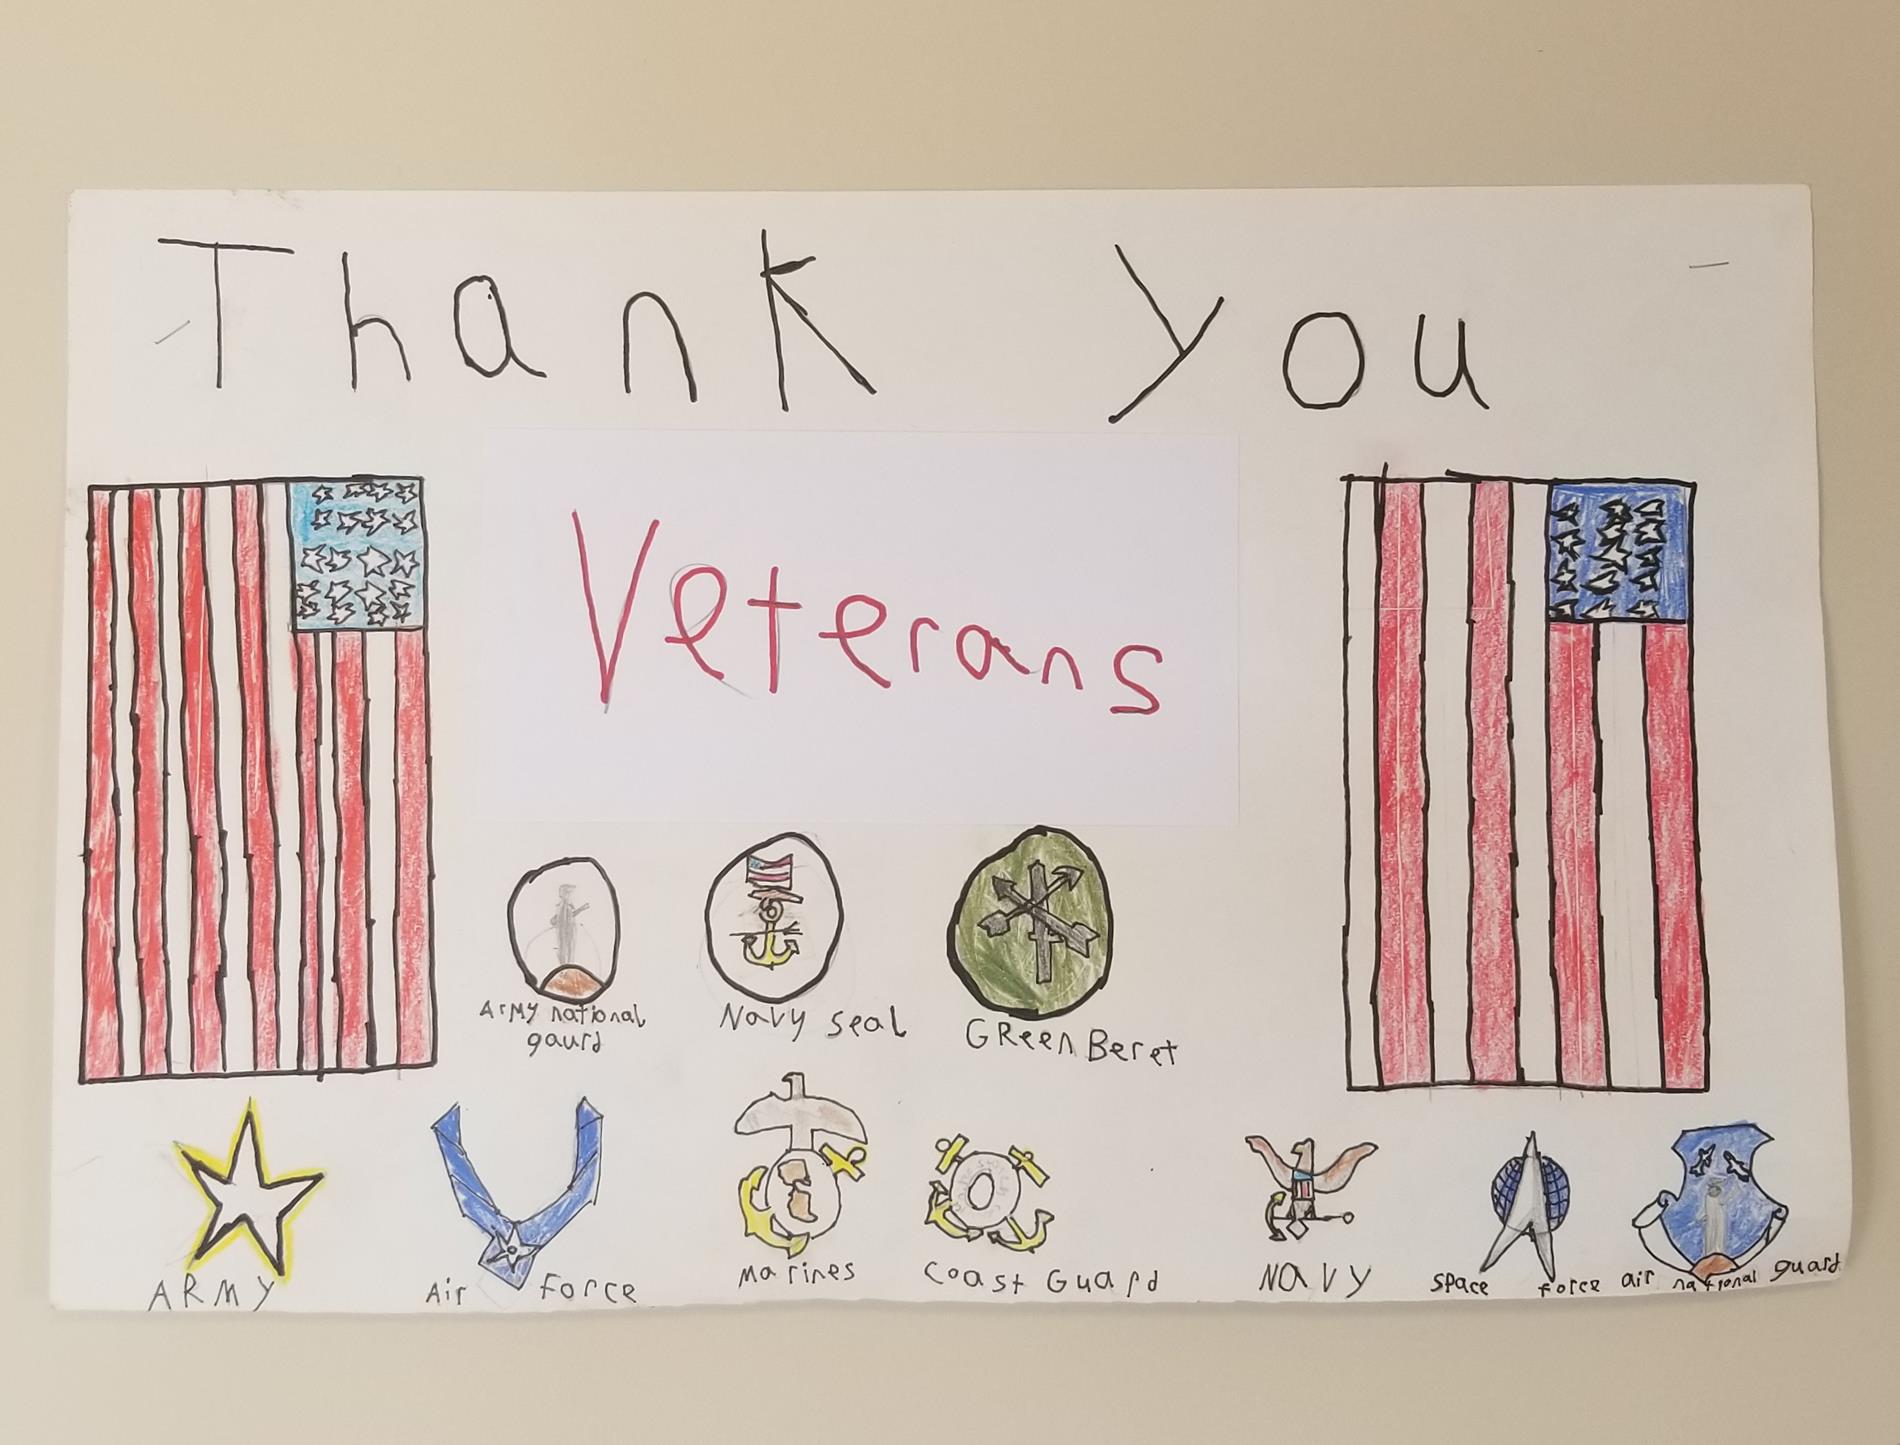 Thank you
Veterans
Army national
gaurd
Navy seal
GReen Beret
ARMY
Air Force
Marines
Coast Guard
NAVY
space force
air national guard